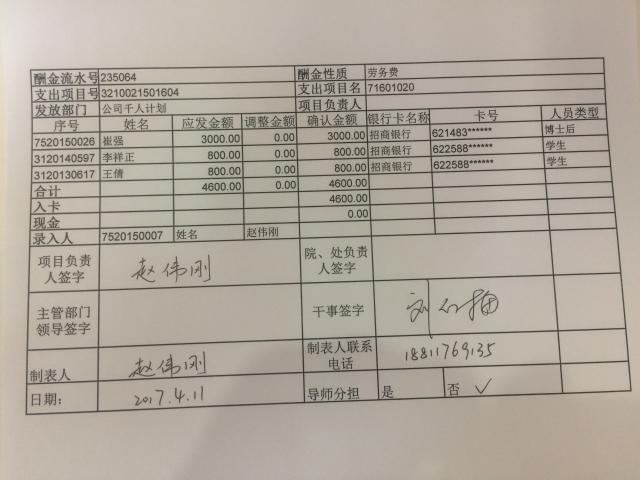 酬金流水号 235064 酬金性质 劳务费
支出项目号 3210021501604 支出项目名 71601020
发放部门 公司千人计划 项目负责人
序号 姓名 应发金额 调整金额 确认金额 银行卡名称 卡号 人员类型
7520150026 崔强 3000.00 0.00 3000.00 招商银行 621483****** 博士后
3120140597 李祥正 800.00 0.00 800.00 招商银行 622588****** 学生
3120130617 王倩 800.00 0.00 800.00 招商银行 622588****** 学生
合计 4600.00 0.00 4600.00
入卡 4600.00
现金 0.00
录入人 7520150007 姓名 赵伟刚
项目负责 赵伟刚 院、处负责
人签字 人签字
主管部门 干事签字
领导签字
制表人联系
制表人 赵伟刚 电话 18811769135
日期： 2017.4.11 导师分担 是 否 ✓